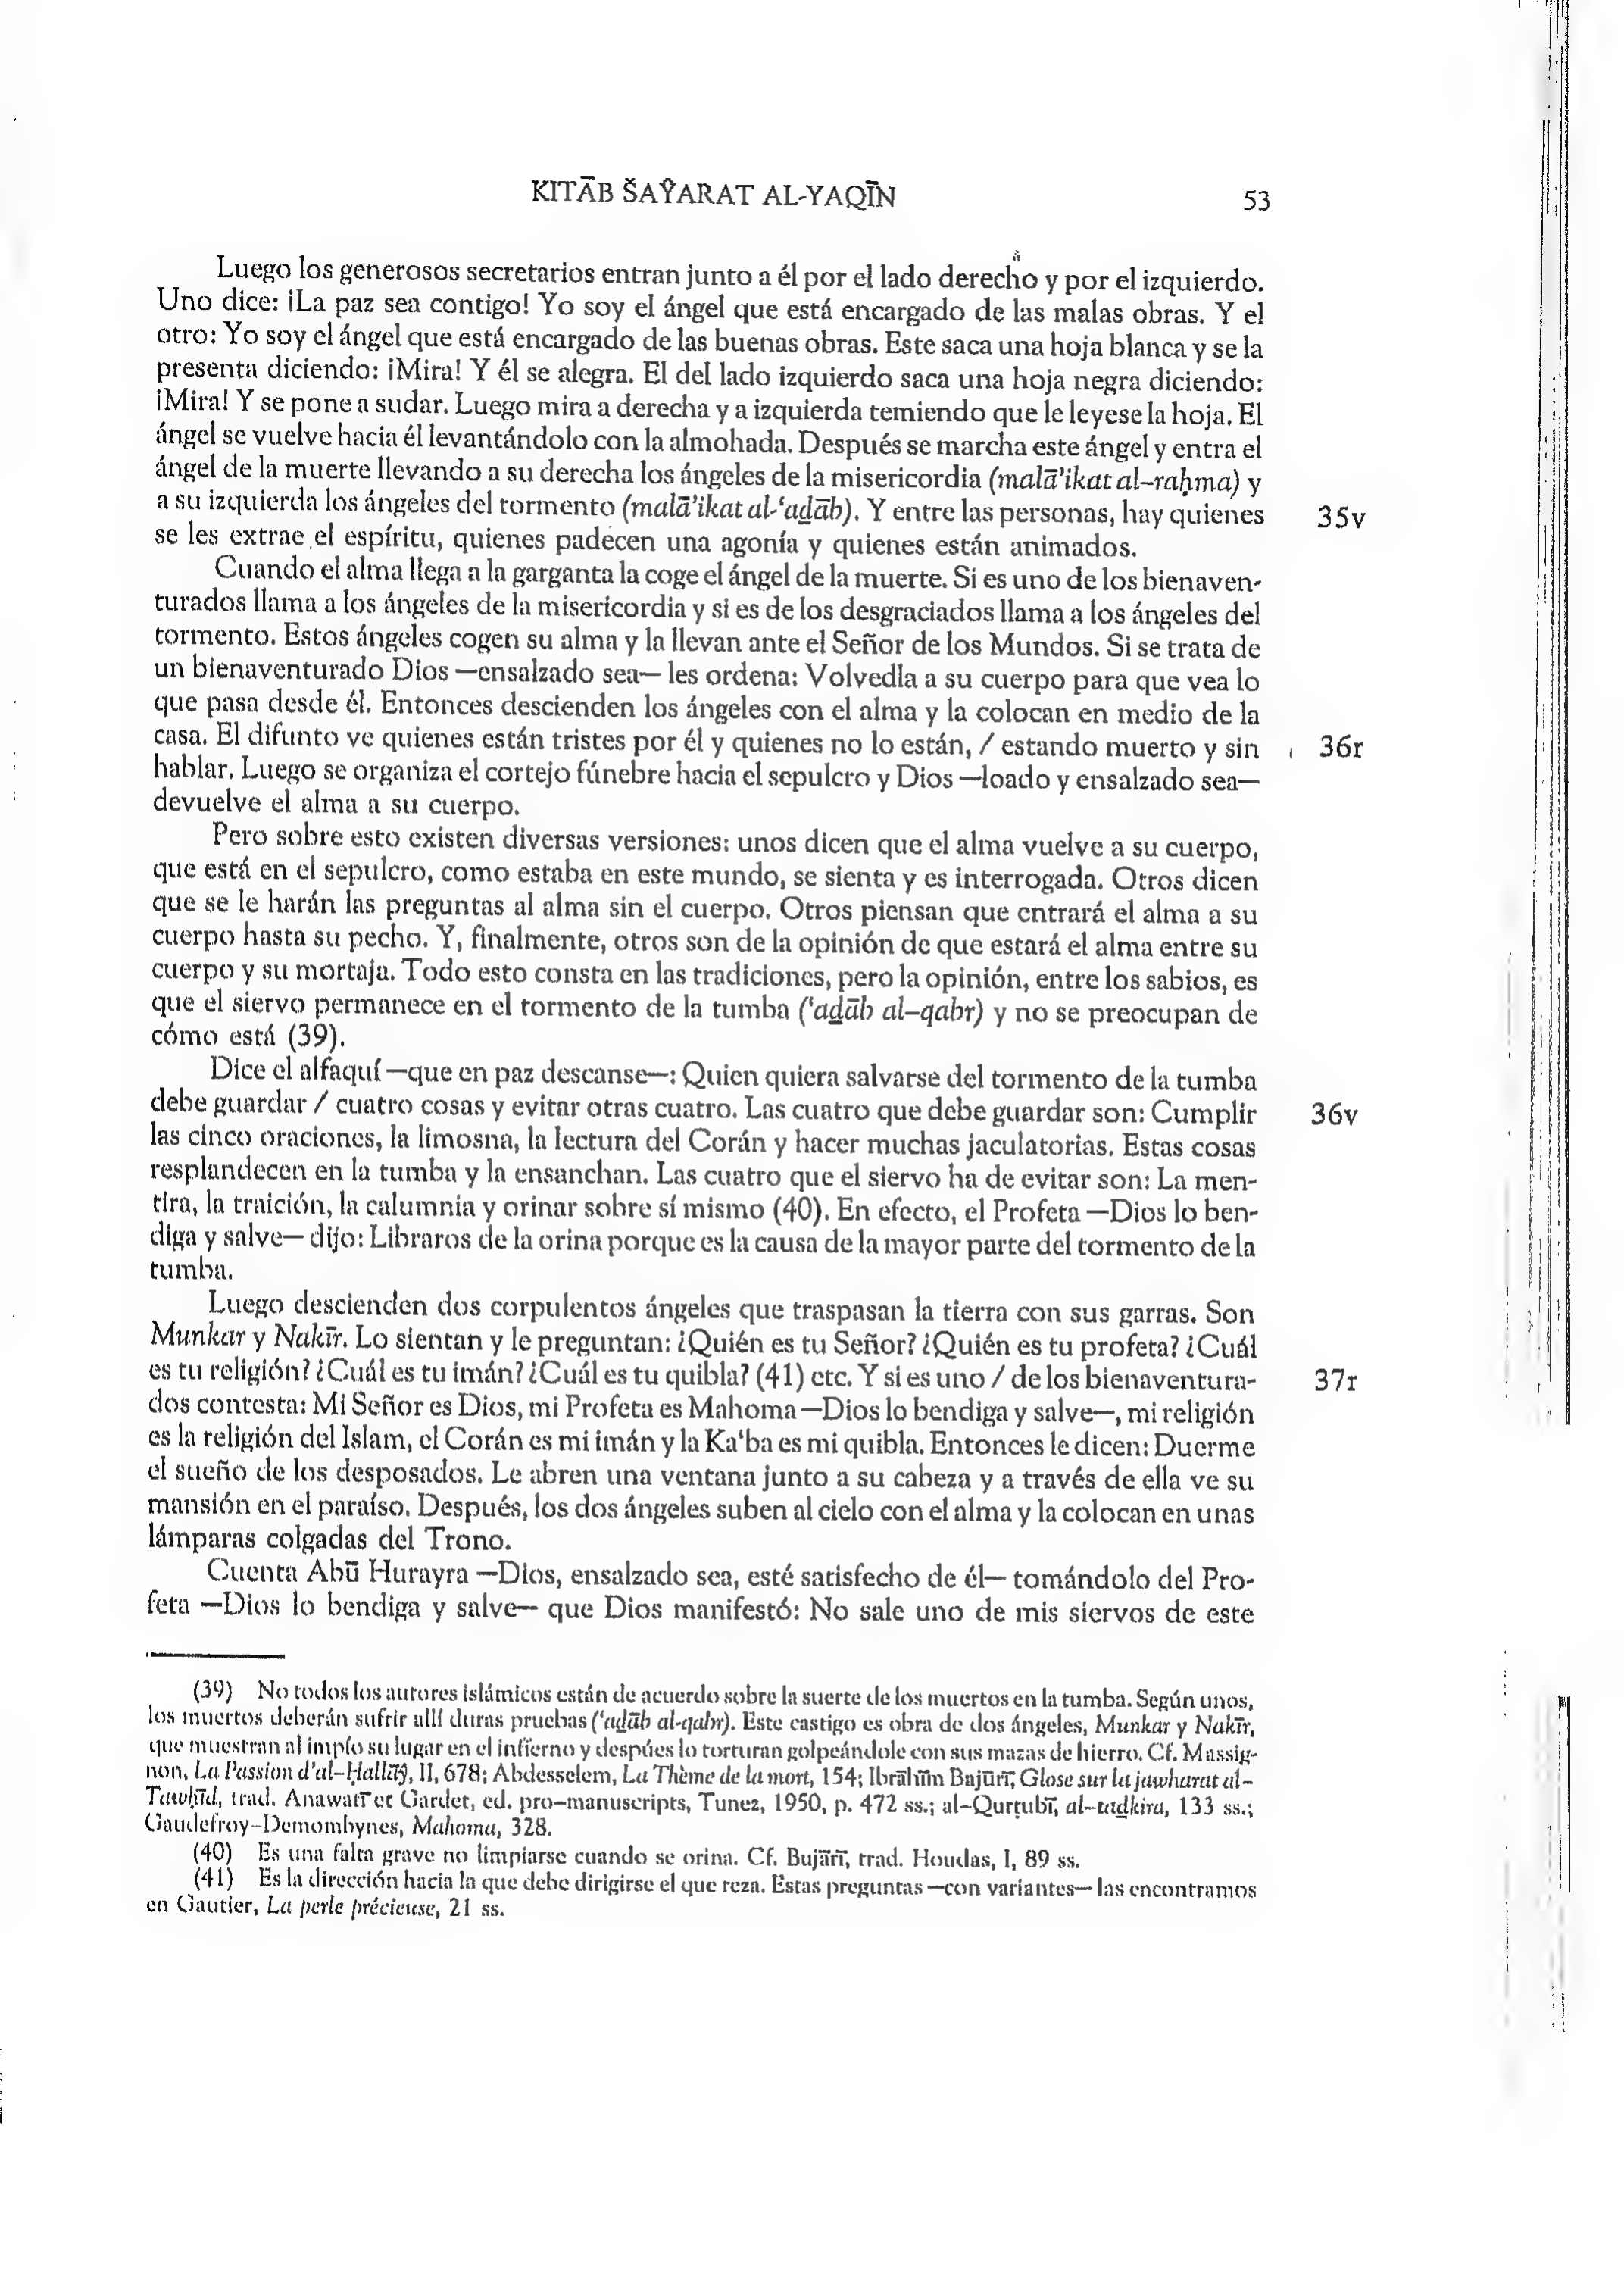 KITĀB ŠAŶARAT AL-YAQĪN
53
Luego los generosos secretarios entran junto a él por el lado derecho y por el izquierdo.
Uno dice: ¡La paz sea contigo! Yo soy el ángel que está encargado de las malas obras. Y el
otro: Yo soy el ángel que está encargado de las buenas obras. Este saca una hoja blanca y se la
presenta diciendo: ¡Mira! Y él se alegra. El del lado izquierdo saca una hoja negra diciendo:
¡Mira! Y se pone a sudar. Luego mira a derecha y a izquierda temiendo que le leyese la hoja. El
ángel se vuelve hacia él levantándolo con la almohada. Después se marcha este ángel y entra el
ángel de la muerte llevando a su derecha los ángeles de la misericordia (malā'ikat al-raḥma) y
a su izquierda los ángeles del tormento (malā'ikat al-‘aḏāb). Y entre las personas, hay quienes 35v
se les extrae el espíritu, quienes padecen una agonía y quienes están animados.
Cuando el alma llega a la garganta la coge el ángel de la muerte. Si es uno de los bienaven-
turados llama a los ángeles de la misericordia y si es de los desgraciados llama a los ángeles del
tormento. Estos ángeles cogen su alma y la llevan ante el Señor de los Mundos. Si se trata de
un bienaventurado Dios —ensalzado sea— les ordena: Volvedla a su cuerpo para que vea lo
que pasa desde él. Entonces descienden los ángeles con el alma y la colocan en medio de la
casa. El difunto ve quienes están tristes por él y quienes no lo están, / estando muerto y sin 36r
hablar. Luego se organiza el cortejo fúnebre hacia el sepulcro y Dios —loado y ensalzado sea—
devuelve el alma a su cuerpo.
Pero sobre esto existen diversas versiones: unos dicen que el alma vuelve a su cuerpo,
que está en el sepulcro, como estaba en este mundo, se sienta y es interrogada. Otros dicen
que se le harán las preguntas al alma sin el cuerpo. Otros piensan que entrará el alma a su
cuerpo hasta su pecho. Y, finalmente, otros son de la opinión de que estará el alma entre su
cuerpo y su mortaja. Todo esto consta en las tradiciones, pero la opinión, entre los sabios, es
que el siervo permanece en el tormento de la tumba (‘aḏāb al-qabr) y no se preocupan de
cómo está (39).
Dice el alfaquí —que en paz descanse—: Quien quiera salvarse del tormento de la tumba
debe guardar / cuatro cosas y evitar otras cuatro. Las cuatro que debe guardar son: Cumplir 36v
las cinco oraciones, la limosna, la lectura del Corán y hacer muchas jaculatorias. Estas cosas
resplandecen en la tumba y la ensanchan. Las cuatro que el siervo ha de evitar son: La men-
tira, la traición, la calumnia y orinar sobre sí mismo (40). En efecto, el Profeta —Dios lo ben-
diga y salve— dijo: Libraros de la orina porque es la causa de la mayor parte del tormento de la
tumba.
Luego descienden dos corpulentos ángeles que traspasan la tierra con sus garras. Son
Munkar y Nakīr. Lo sientan y le preguntan: ¿Quién es tu Señor? ¿Quién es tu profeta? ¿Cuál
es tu religión? ¿Cuál es tu imán? ¿Cuál es tu quibla? (41) etc. Y si es uno / de los bienaventura- 37r
dos contesta: Mi Señor es Dios, mi Profeta es Mahoma —Dios lo bendiga y salve—, mi religión
es la religión del Islam, el Corán es mi imán y la Ka‘ba es mi quibla. Entonces le dicen: Duerme
el sueño de los desposados. Le abren una ventana junto a su cabeza y a través de ella ve su
mansión en el paraíso. Después, los dos ángeles suben al cielo con el alma y la colocan en unas
lámparas colgadas del Trono.
Cuenta Abū Hurayra —Dios, ensalzado sea, esté satisfecho de él— tomándolo del Pro-
feta —Dios lo bendiga y salve— que Dios manifestó: No sale uno de mis siervos de este
(39) No todos los autores islámicos están de acuerdo sobre la suerte de los muertos en la tumba. Según unos,
los muertos deberán sufrir allí duras pruebas (‘aḏāb al-qabr). Este castigo es obra de dos ángeles, Munkar y Nakīr,
que muestran al impío su lugar en el infierno y despúes lo torturan golpeándole con sus mazas de hierro. Cf. Massig-
non, La Passion d'al-Ḥallāŷ, II, 678; Abdesselem, La Thème de la mort, 154; Ibrāhīm Bajūrī, Glose sur la jawharat al-
Tawḥīd, trad. Anawatī et Gardet, ed. pro-manuscripts, Tunez, 1950, p. 472 ss.; al-Qurṭubī, al-taḏkira, 133 ss.;
Gaudefroy-Demombynes, Mahoma, 328.
(40) Es una falta grave no limpiarse cuando se orina. Cf. Bujārī, trad. Houdas, I, 89 ss.
(41) Es la dirección hacia la que debe dirigirse el que reza. Estas preguntas —con variantes— las encontramos
en Gautier, La perle précieuse, 21 ss.